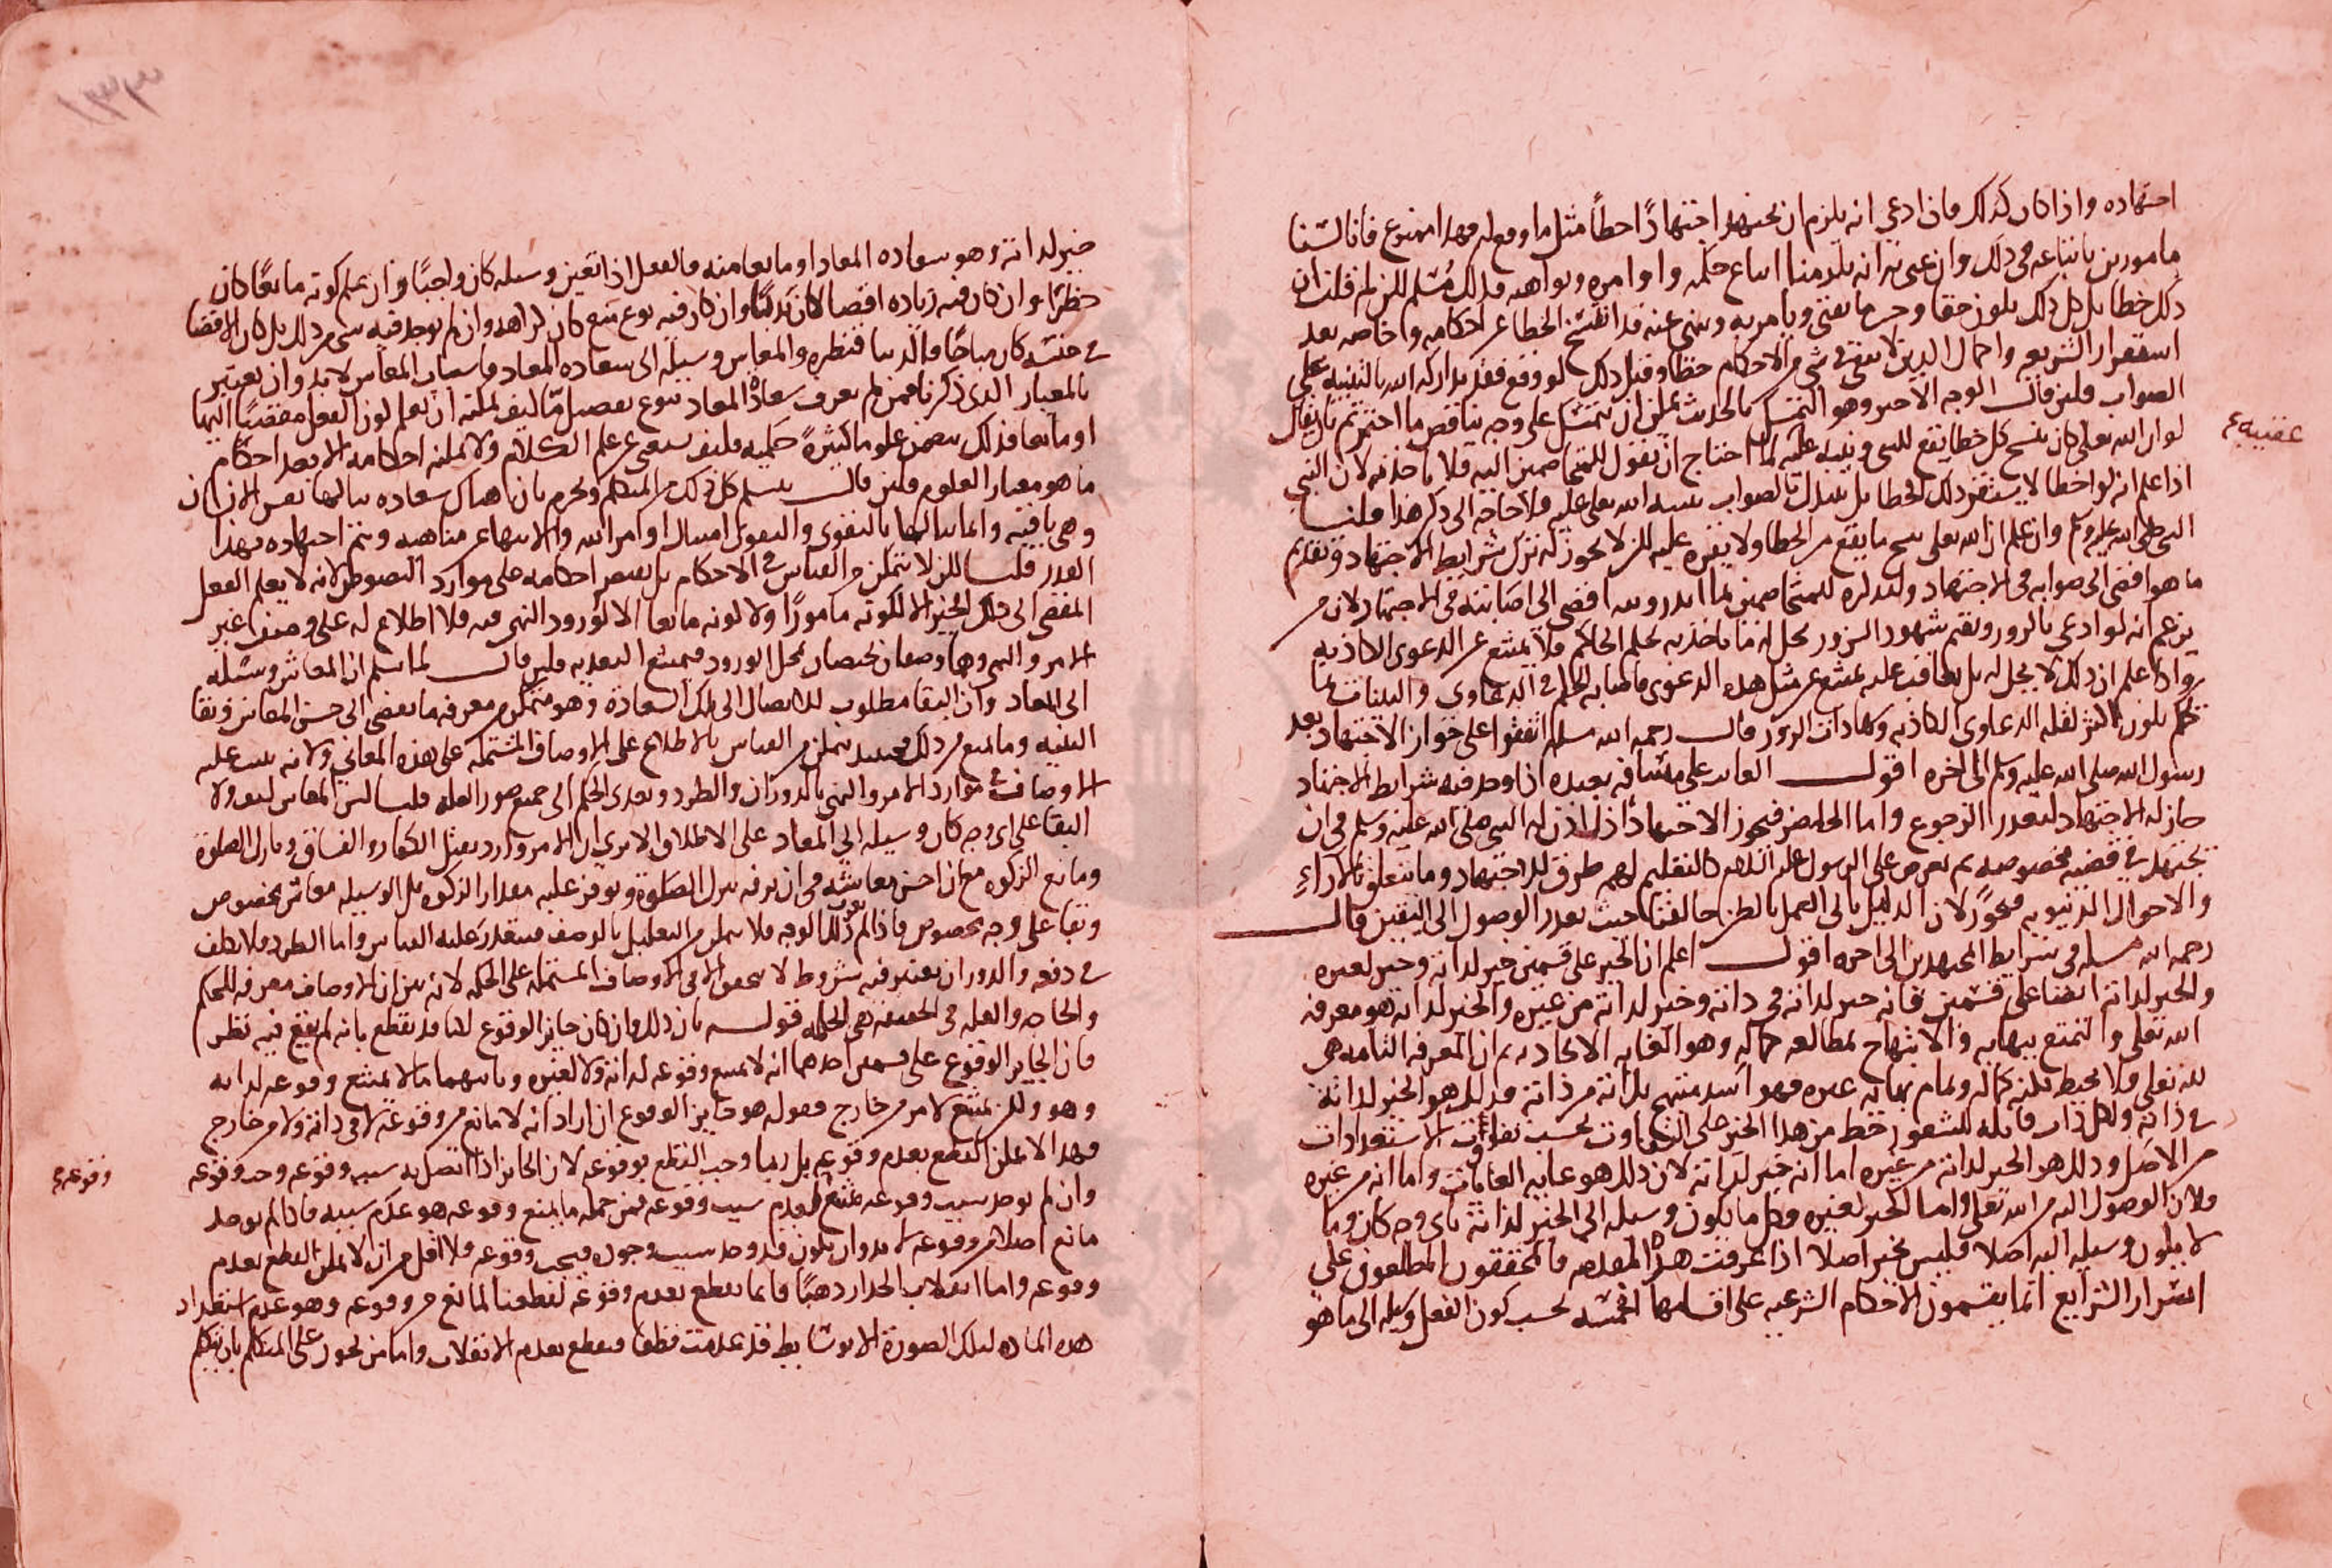 اجتهاده واذا كان كذلك فان ادعى انه يلزم ان يجتهد اجتهادًا خطأً مثل ما وقع له فهذا ممنوع فانا لسنا
مامورين باتباعه في ذلك وان عنى به انه يلزمنا اتباع حكمه واوامره ونواهيه فذلك مُسَلم لكن لم قلت ان
ذلك خطا بل كل ذلك يكون حقا وخبر ما يفتى ويامر به وينهى عنه قد انفسخ الخطا عن احكامه واخاصه بعد
استقرار الشريعه واكمال الدين لا يبقى في شي من الاحكام خطا وقبل ذلك لو وقع فقد تداركه الله بالتنبيه على
الصواب فلئن قال الوجه الاخير وهو التمسك بالحديث يمكن ان نتمسك على وجه يناقض ما اخترتم بان يقال
لو ان الله تعالى كان ينسخ كل خطا يقع للنبى وينبه عليه لما احتاج ان يقول للمتخاصمين اليه فلا ياخذنه لان النبي
عقيبه
اذا علم انه لو اخطا لا يستقر ذلك الخطا بل يتبدل بالصواب بتنبيه الله تعالى عليه فلا حاجه الى ذكر هذا قلنا
النبى صلى الله عليه وسلم وان علم ان الله تعالى ينسخ ما يقع من الخطا ولا يقره عليه لكن لا يجوز له ترك شرايط الاجتهاد وتقديم
ما هو افضى الى صوابه في الاجتهاد ولعل ذكره للمتخاصمين لما انذر وبينه افضى الى اصابته في الاجتهاد لان من
يزعم انه لو ادعى بالزور وتقيم شهود الزور يحل له ما ياخذ به بحكم الحاكم فلا يمتنع عن الدعوى الكاذبه
واذا علم ان ذلك لا يحل له بل يعاقب عليه يمتنع عن مثل هذه الدعوى فاصابه الحكم في الدعاوى والبينات بما
تحكم يكون اكثر لقله الدعاوى الكاذبه وشهادات الزور قال رحمه الله مسله اتفقوا على جواز الاجتهاد بعد
رسول الله صلى الله عليه وسلم الى اخره اقول الغائب على مسافه بعيده اذا وجد فيه شرايط الاجتهاد
جاز له الاجتهاد لتعذر الرجوع واما الحاضر فيجوز الاجتهاد اذا اذن له النبي صلى الله عليه وسلم في ان
يجتهد في قضيه مخصوصه ثم يعرض على الرسول عليه السلم كالتعليم لهم طرق للاجتهاد وما يتعلق بالآراءِ
والاحوال الدنيويه فيجوز لان الدليل يابى العمل بالظن خالفناه حيث تعذر الوصول الى اليقين قال
رحمه الله مسله في شرايط المجتهدين الى اخره اقول اعلم ان الخير على قسمين خير لذاته وخير لغيره
والخير لذاته ايضا على قسمين فانه خير لذاته في ذاته وخير لذاته من غيره والخير لذاته هو معرفه
الله تعالى والتمتع ببهائه والابتهاج بمطالعه جماله وهو الغايه الا يجاديه ثم ان المعرفه التامه هى
لله تعالى فلا يحيط بكنه كماله وتمام بهائه غيره فهو اشد مبتهج بذاته من ذاته فذلك هو الخير لذاته
في ذاته ولكل ذات قابله للشعور حظ من هذا الخير على التفاوت بحسب تفاوت الاستعدادات
من الاصل وذلك هو الخير لذاته من غيره اما انه خير لذاته لان ذلك هو غايه الغايات واما انه من غيره
فلان الوصول اليه من الله تعالى واما الخير لغيره فكل ما يكون وسيله الى الخير لذاته باى وجه كان وما
لا يكون وسيله اليه اصلا فليس بخير اصلا اذا عرفت هذه المقدمه فالمحققون المطلعون على
اسرار الشرايع انما يقسمون الاحكام الشرعيه على اقسامها الخمسه بحسب كون الفعل وسيله الى ما هو
خير لذاته وهو سعاده المعاد او مانعا منه فالفعل اذا تعين وسيله كان واجبًا وان يعلم كونه مانعًا كان
حظرًا وان كان فيه زياده افضا كان ندبًا وان كان فيه نوع منع كان كراهه وان لم يوجد فيه شى من ذلك بل كان الافضا
في جنسه كان مباحًا فالدنيا قنطره والمعاش وسيله الى سعاده المعاد فاسباب المعاش لا بد وان تعتبر
بالمعيار الذى ذكرنا فمن لم يعرف سعادة المعاد بنوع تفصيل ما كيف يمكنه ان يعلم كون الفعل مفضيًا اليها
او مانعا فذلك يتضمن علوما كثيرةً حكميه فكيف يستغنى عن علم الكلام ولا يمكنه احكامه الا بعد احكام
ما هو معيار العلوم فلئن قال يتسلم كل ذلك من المتكلم ويجزم بان هناك سعاده ينالها نفس الانسان
وهى باقيه وانما ينالها بالتقوى والتقوى امتثال اوامر الله والانتهاء عن مناهيه ويتم اجتهاده بهذا
القدر قلنا لكن لا يتمكن من القياس في الاحكام بل يقتصر احكامه على موارد النصوص لانه لا يعلم الفعل
المفضى الى ذلك الخير الا لكونه مامورًا ولا كونه مانعا الا لورود النهى فيه فلا اطلاع له على وصف غير
الامر والنهى وهما وصفان يختصان بمحل الورود فيمتنع التعديه فلئن قال لما سلم ان المعاش وسيله
الى المعاد وان البقا مطلوب للايصال الى تلك السعادة وهو متمكن من معرفه ما يفضى الى حسن المعاش وبقا
البنيه وما يمنع من ذلك فحينئذ يتمكن من القياس بالاطلاع على الاوصاف المشتمله على هذه المعانى ولانه ينبه عليه
الاوصاف في موارد الامر والنهى بالدوران والطرد وتعدى الحكم الى جميع صور العله قلنا ليس المعاش كيف ولا
البقا على اى وجه كان وسيله الى المعاد على الاطلاق الا يرى ان الامر وارد بقتل الكفار والفساق وتارك الصلوة
ومانع الزكوه مع ان احسن معايشه في ان يرفه بترك الصلوة ويوفر عليه مقدار الزكوه بل الوسيله معاش مخصوص
وبقا على وجه مخصوص فاذا لم يعرف ذلك الوجه فلا يمكن من التعليل بالوصف فيتعذر عليه القياس واما الطرد فلا يخفى
في دفعه والدوران يعتبر فيه شروط لا يتحقق الا في الاوصاف المشتمله على الحكمه لانه يبين ان الاوصاف معرفه للحكم
والحاجه والعله في الحقيقه هى الحكمه قوله بان ذلك وان كان جايز الوقوع لكنا قد نقطع بانه لم يقع فيه نظر
فان الجايز الوقوع على قسمين احدهما انه لا يمتنع وقوعه لذاته ولا لغيره وثانيهما ما لا يمتنع وقوعه لذاته
وهو ولكن يمتنع لامر من خارج فقوله هو جايز الوقوع ان اراد انه لا مانع من وقوعه لا في ذاته ولا من خارج
فهذا لا يمكن القطع بعدم وقوعه بل ربما وجب القطع بوقوعه لان الجايز اذا اتصل به سبب وقوعه وجب وقوعه
وقوعه
وان لم يوجد سبب وقوعه يمتنع لعدم سبب وقوعه فمن جمله ما يمنع وقوعه هو عدم سببه فاذا لم يوجد
مانع اصلا من وقوعه لا بد وان يكون قد وجد سبب وجوده فيجب وقوعه فلا اقل من ان لا يمكن القطع بعدم
وقوعه واما انقلاب الجدار ذهبًا فانما نقطع بعدم وقوعه لقطعنا لمانع من وقوعه وهو عدم استعداد
هذه الماده لتلك الصورة الا بوسايط قد عدمت قطعا فنقطع بعدم الانقلاب واما من يجوز على المتكلم بان يتكلم